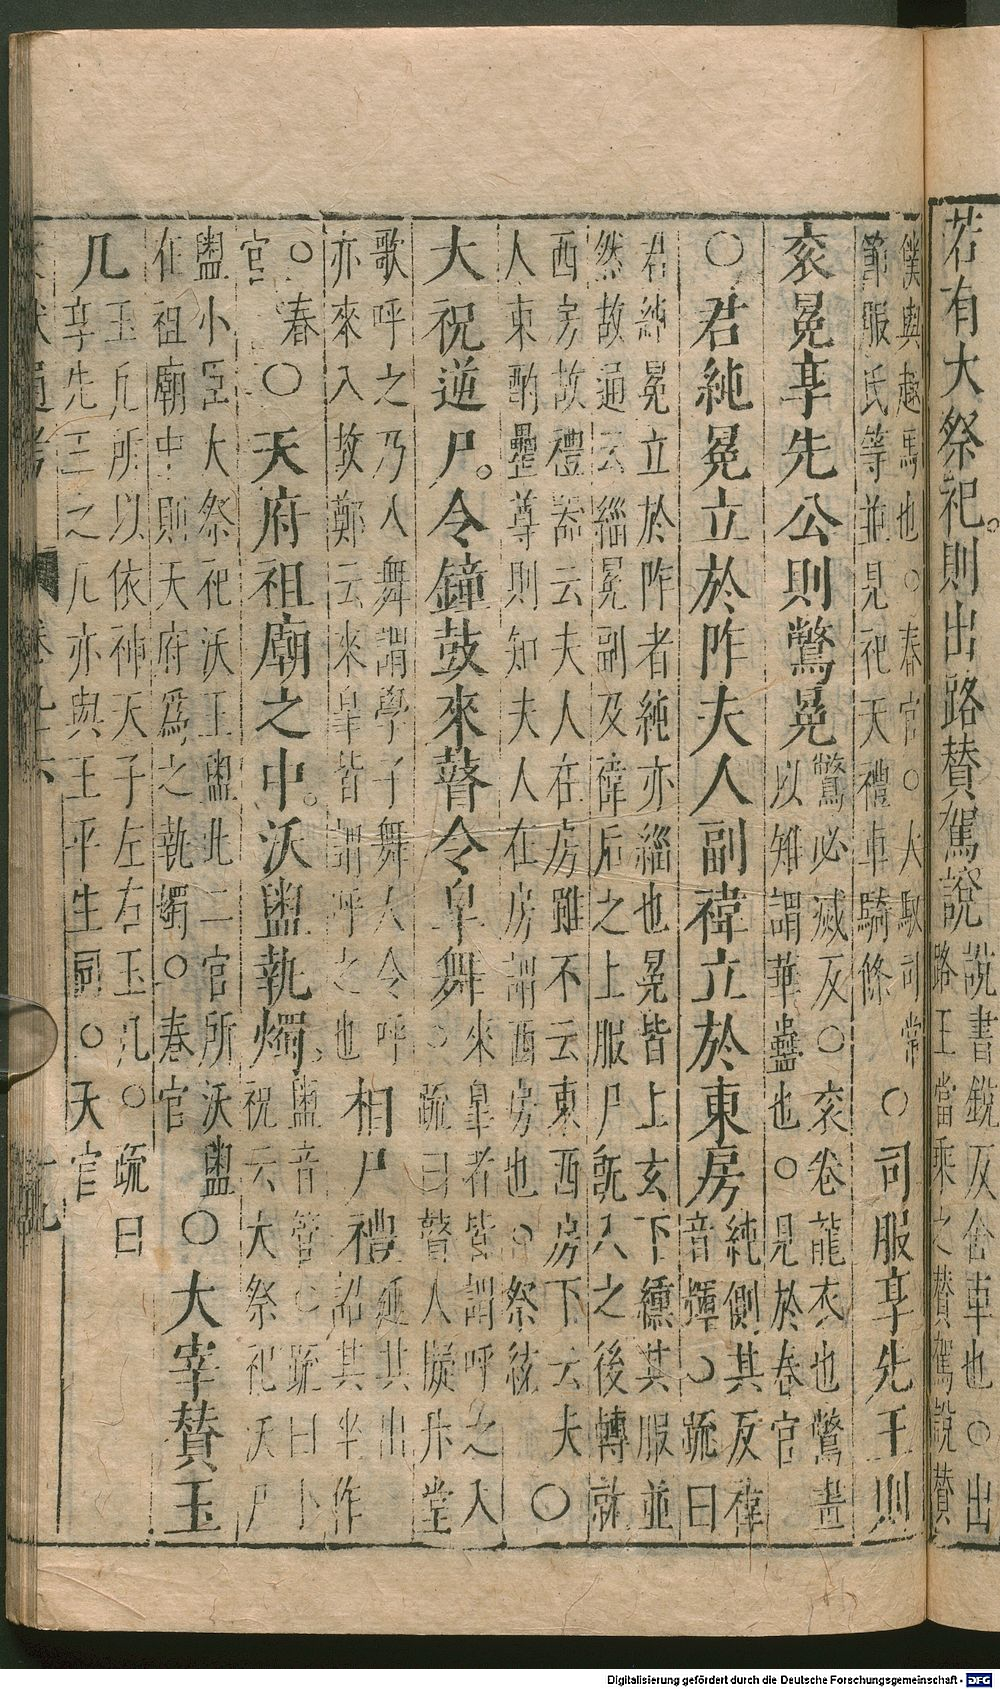 若有大祭祀則出路贊駕說說書銳反舍車也○出
路王當乘之贊駕說贊
僕與趣馬也○春官○大馭司常○司服享先王則
節服氏等並見祀天禮車騎條
袞冕享先公則鷩冕鷩必滅反○袞卷龍衣也鷩畫
以知謂華蟲也○見於春官
○君純冕立於阼夫人副褘立於東房純側其反褘
音輝○疏曰
君純冕立於阼者純亦緇也冕皆上玄下纁其服並
然故通云緇冕副及褘后之上服尸旣入之後轉就
西房故禮器云夫人在房雖不云東西房下云夫
人東酌罍尊則知夫人在房謂西房也○祭統○
大祝逆尸令鐘鼓來瞽令皐舞來皐者皆謂呼之入
疏曰瞽人擬升堂
歌呼之乃入舞謂學子舞人令呼相尸禮延其出
亦來入故鄭云來皐皆謂呼之也詔其坐作
○春○天府祖廟之中沃盥執燭盥音管○疏曰卜
官祝云大祭祀沃尸
盥小臣大祭祀沃王盥此二官所沃盥○大宰贊玉
在祖廟中則天府爲之執燭○春官
几玉几所以依神天子左右玉几○疏曰
享先王之几亦與王平生同○天官